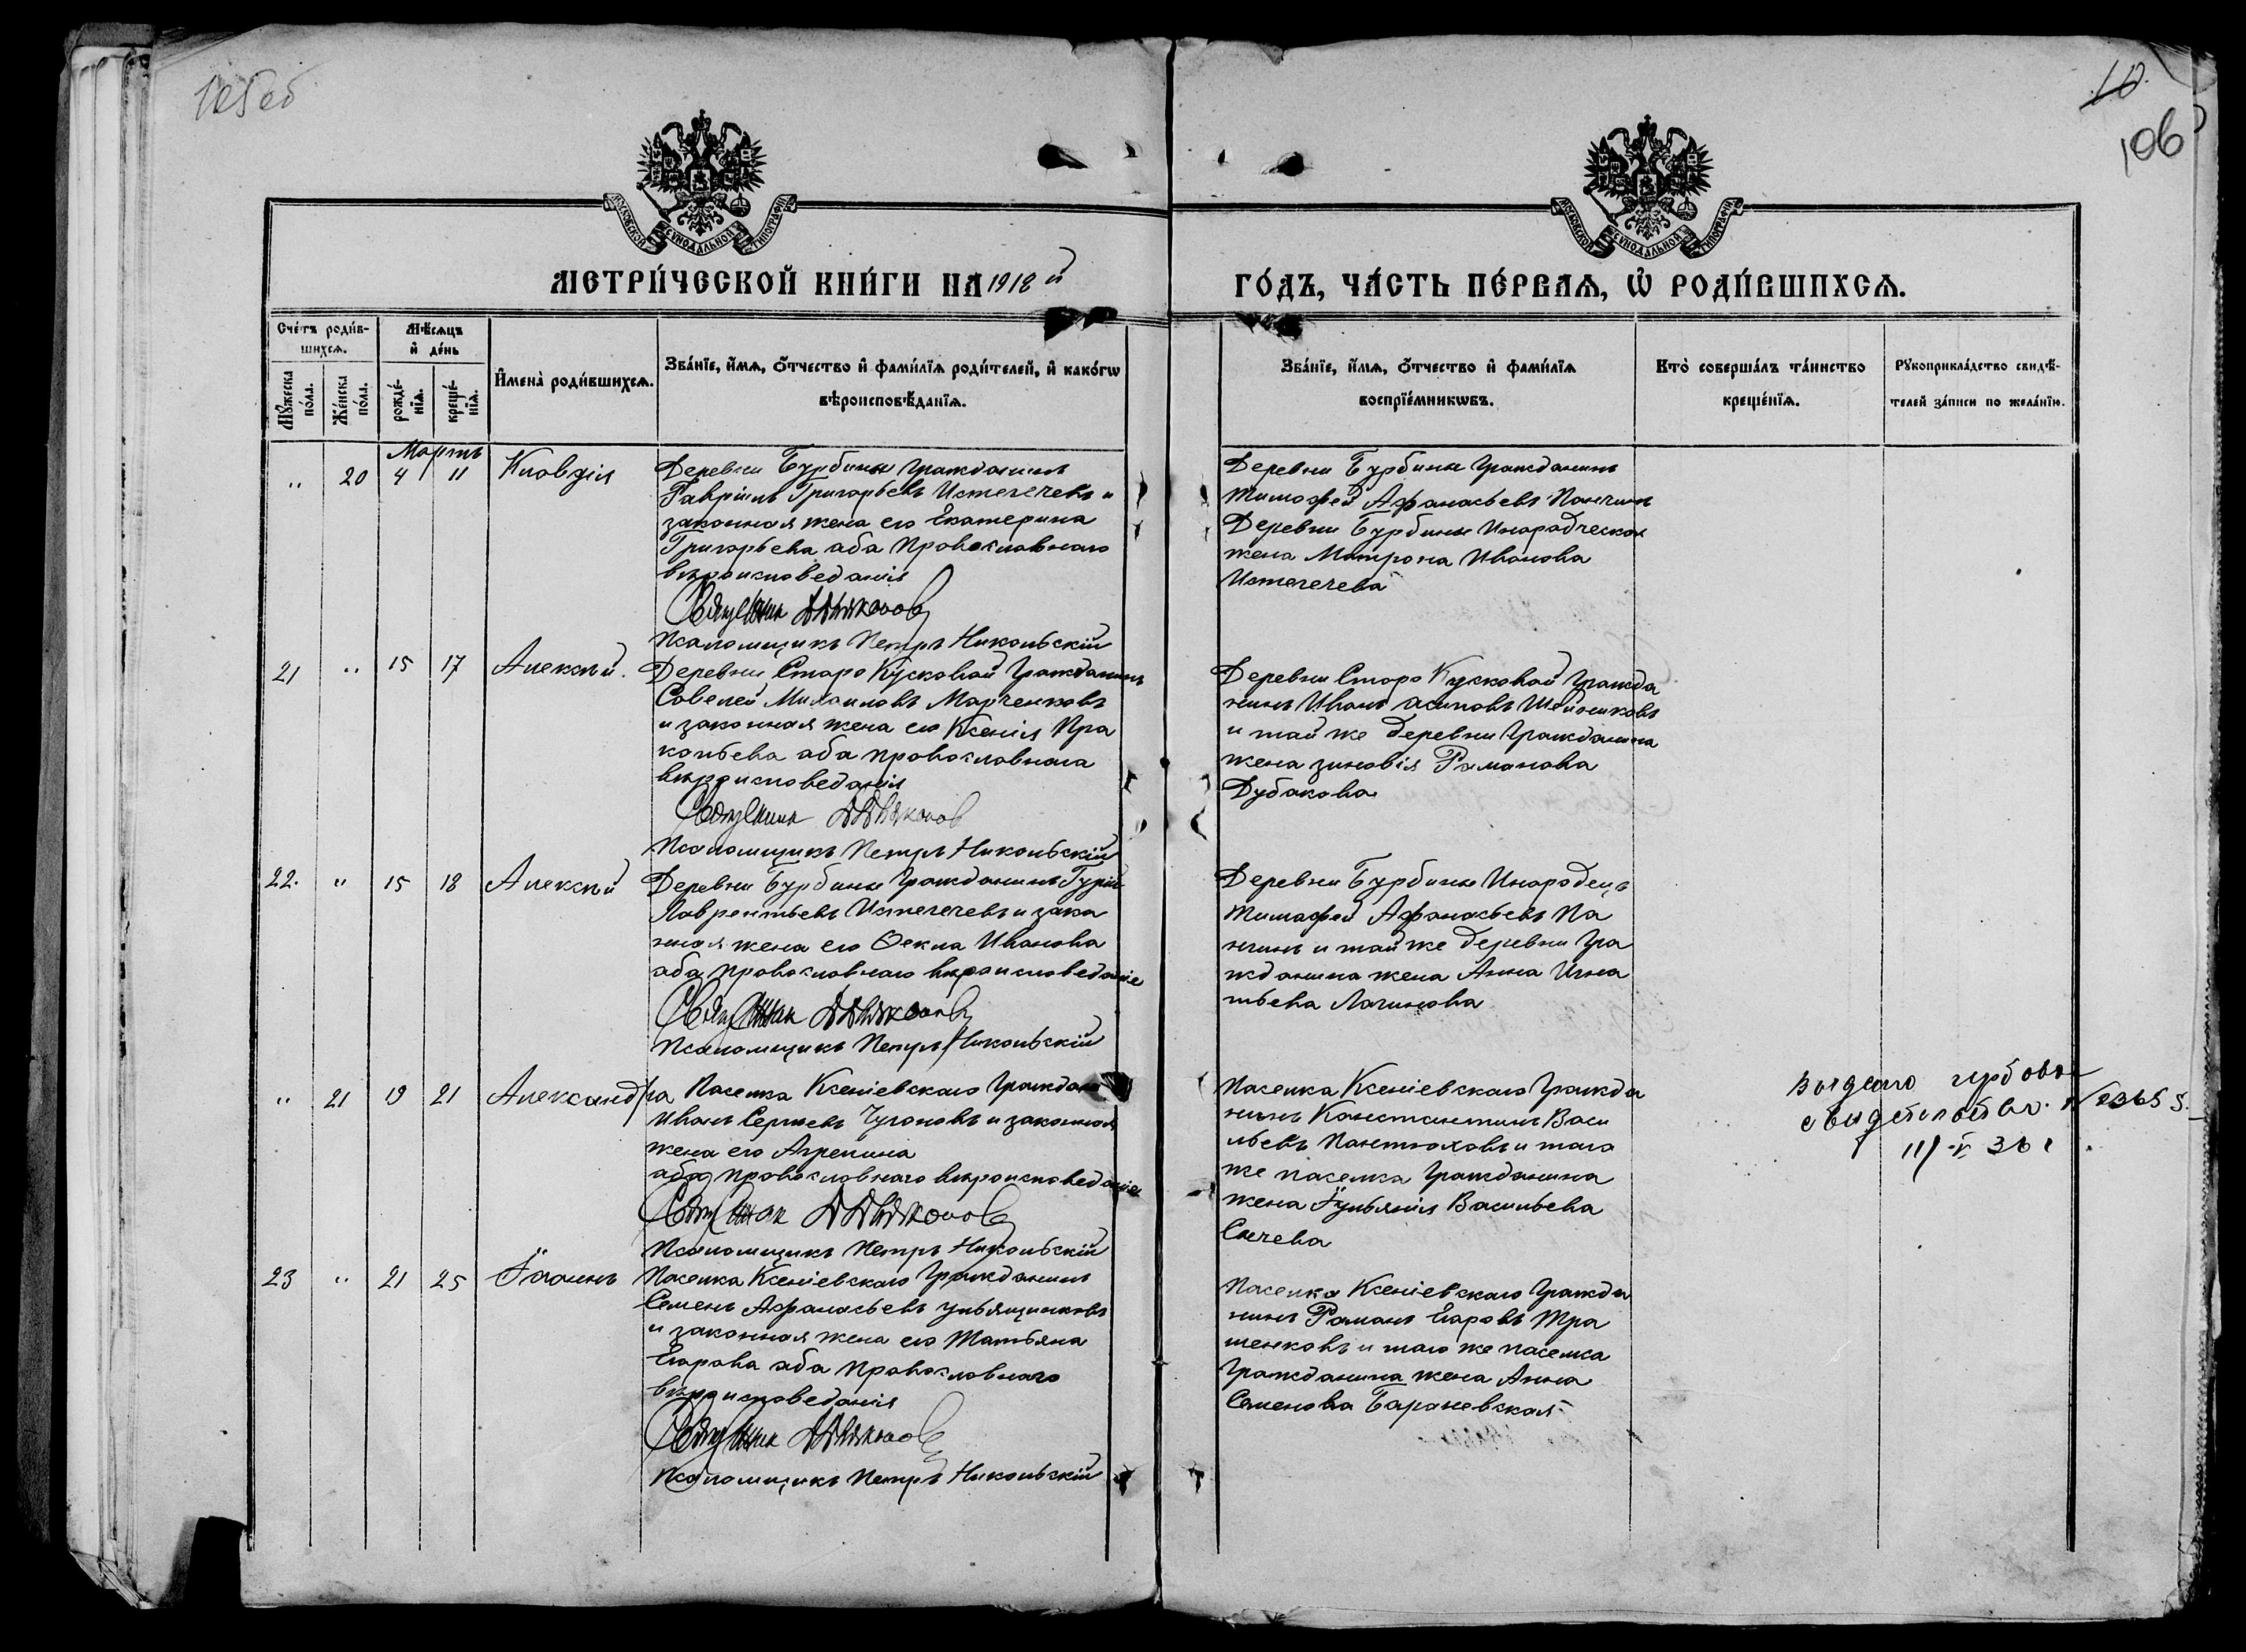 10
106
МЕТРИ́ЧЕСКОЙ КНИ́ГИ НА 1918 й
ГО́ДЪ, ЧА́СТЬ ПЕ́РВАѦ, Ѡ҆ РОДИ́ВШИХСѦ.
Сче́тъ роди́в-
шихсѧ.
Мѣ́сѧцъ
и҆ де́нь
Мꙋ́жеска по́ла.
Же́нска по́ла.
рожде́-
нїѧ.
креще́-
нїѧ.
И҆мена̀ роди́вшихсѧ.
Зва́нїе, и҆́мѧ, ѻ҆́тчество и҆ фами́лїѧ роди́телей, и҆ како́гѡ
вѣроисповѣ́данїѧ.
Зва́нїе, и҆́мѧ, ѻ҆́тчество и҆ фами́лїѧ
воспрїе́мникѡвъ.
Кто̀ соверша́лъ та́инство
креще́нїѧ.
Рꙋкоприкла́дство свидѣ́-
телей за́писи по жела́нїю.
Мартъ
" 20 4 11 Клавдія
Деревни Бурбины Гражданинъ
Гавріилъ Григорьевъ Истегечевъ и
законная жена его Екатерина
Григорьева аба Провославнаго
вѣроисповеданія
Священникъ Дьяконовъ
Псаломщикъ Петръ Никольскій
Деревни Бурбины Гражданинъ
Тимофей Афанасьевъ Панчинъ
Деревни Бурбины Инародческая
жена Матрона Иванова
Истегечева
21 " 15 17 Алексѣй.
Деревни Старо Кусковой Гражданинъ
Савелей Михаиловъ Марченковъ
и законная жена его Ксенія Пра
копьева аба провославнага
вѣроисповеданія
Священникъ Дьяконовъ
Псаломщикъ Петръ Никольскій
Деревни Старо Кусковой Гражда
нинъ Иванъ асиповъ
и тай же деревни Гражданина
жена зиновія Раманова
Дубакова
22. " 15 18 Алексѣй
Деревни Бурбины Гражданинъ Гурій
Лаврентьевъ Истегечевъ и зака
нная жена его Фекла Иванова
аба провославнаго вѣроисповеданіе
Священникъ Дьяконовъ
Псаломщикъ Петръ Никольскій
Деревни Бурбины Инародецъ
Тимафей Афанасьевъ Па
нчинъ и тай же деревни Гра
жданина жена Анна Игна
тьева Лагинова
" 21 19 21 Александра
Паселка Ксеніевскаго Граждан
Иванъ Сергѣевъ Чугановъ и законная
жена его Агрепина
аба провославнаго вѣроисповеданіе
Священникъ Дьяконовъ
Псаломщикъ Петръ Никольскій
Паселка Ксеніевскаго Гражда
нинъ Канстантинъ Васи
льевъ Пантюховъ и таго
же паселка Гражданина
жена Іульянія Васильева
Сычева
Выдано гербовое
свидетельство № 23655.
11/V 36 г
23 " 21 25 Іаанъ
Паселка Ксеніевскаго Гражданинъ
Семенъ Афанасьевъ Ульященковъ
и законная жена его Татьяна
Егарова аба Провославнаго
вѣроисповеданія
Священникъ Дьяконовъ
Псаломщикъ Петръ Никольскій
Паселка Ксеніевскаго Гражда
нинъ Раманъ Егаровъ Тра
шенковъ и таго же паселка
Гражданина жена Анна
Семенова Бараневская